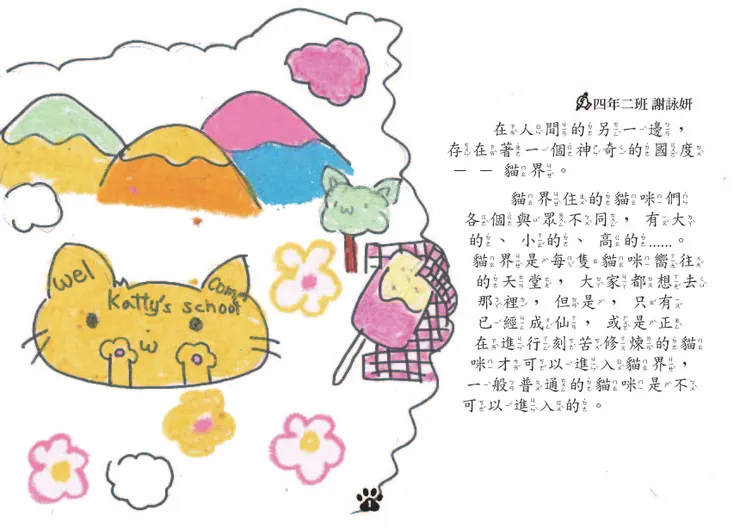 wel
come
Katty's school
四年二班 謝詠妍
在人間的另一邊，
存在著一個神奇的國度
——貓界。
貓界住的貓咪們
各個與眾不同，有大
的、小的、高的……。
貓界是每隻貓咪嚮往
的天堂，大家都想去
那裡，但是，只有
已經成仙，或是正
在進行刻苦修煉的貓
咪才可以進入貓界，
一般普通的貓咪是不
可以進入的。
1